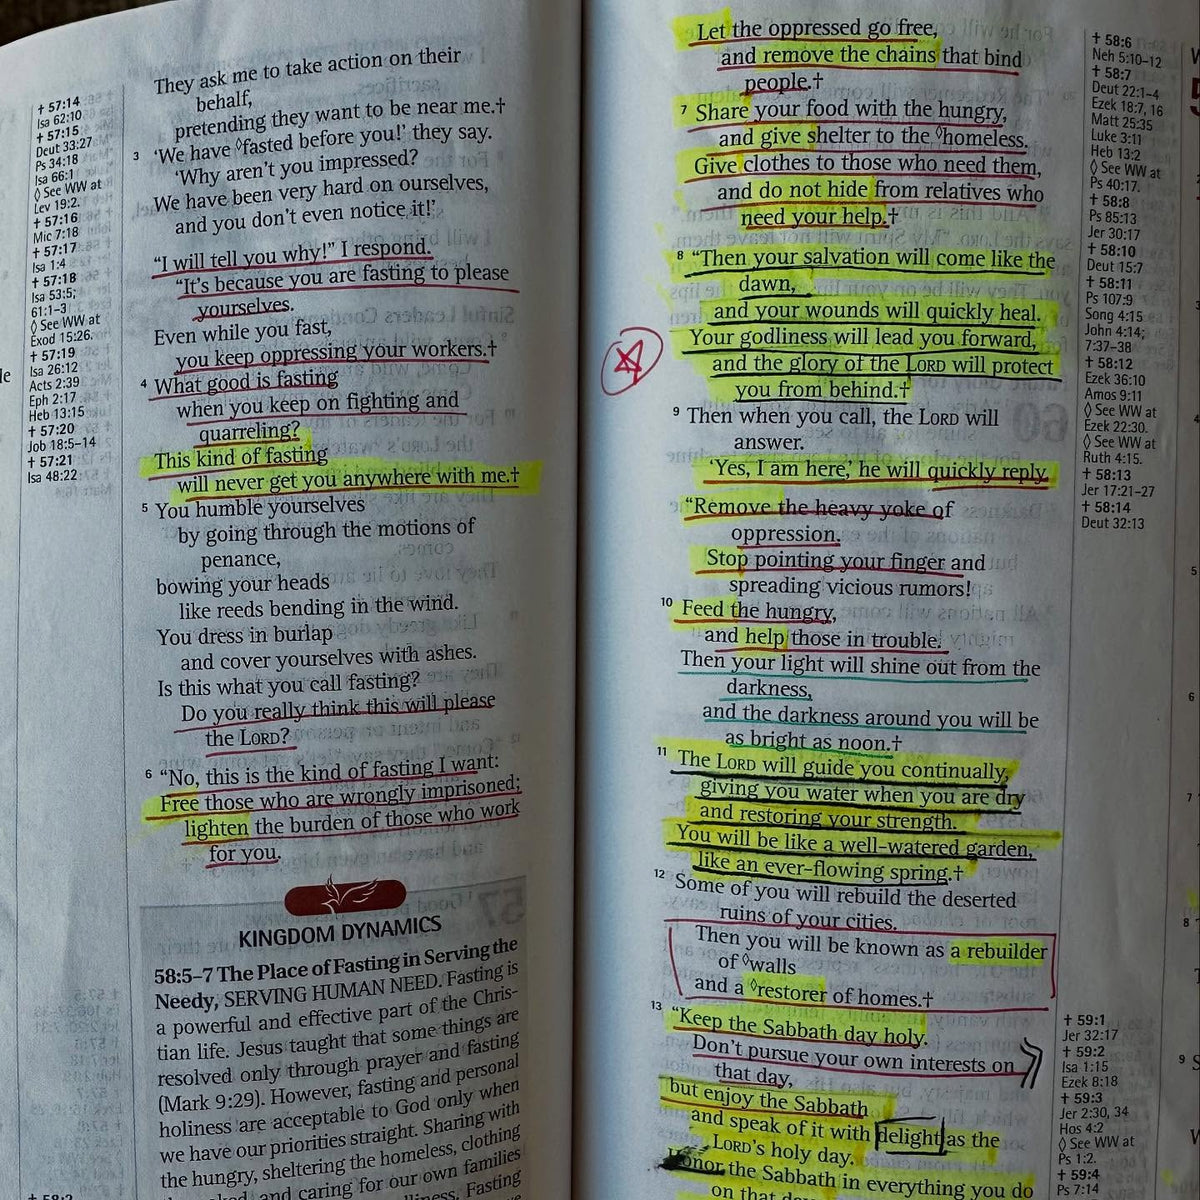 † 57:14
Isa 62:10
† 57:15
Deut 33:27
Ps 34:18
Isa 66:1
◊ See WW at
Lev 19:2.
† 57:16
Mic 7:18
† 57:17
Isa 1:4
† 57:18
Isa 53:5;
61:1–3
◊ See WW at
Exod 15:26.
† 57:19
Isa 26:12
Acts 2:39
Eph 2:17
Heb 13:15
† 57:20
Job 18:5–14
† 57:21
Isa 48:22
They ask me to take action on their
behalf,
pretending they want to be near me.†
3 ‘We have ◊fasted before you!’ they say.
‘Why aren’t you impressed?
We have been very hard on ourselves,
and you don’t even notice it!’
“I will tell you why!” I respond.
“It’s because you are fasting to please
yourselves.
Even while you fast,
you keep oppressing your workers.†
4 What good is fasting
when you keep on fighting and
quarreling?
This kind of fasting
will never get you anywhere with me.†
5 You humble yourselves
by going through the motions of
penance,
bowing your heads
like reeds bending in the wind.
You dress in burlap
and cover yourselves with ashes.
Is this what you call fasting?
Do you really think this will please
the LORD?
6 “No, this is the kind of fasting I want:
Free those who are wrongly imprisoned;
lighten the burden of those who work
for you.
KINGDOM DYNAMICS
58:5–7 The Place of Fasting in Serving the
Needy, SERVING HUMAN NEED. Fasting is
a powerful and effective part of the Chris-
tian life. Jesus taught that some things are
resolved only through prayer and fasting
(Mark 9:29). However, fasting and personal
holiness are acceptable to God only when
we have our priorities straight. Sharing with
the hungry, sheltering the homeless, clothing
and caring for our own families
Fasting
Let the oppressed go free,
and remove the chains that bind
people.†
7 Share your food with the hungry,
and give shelter to the ◊homeless.
Give clothes to those who need them,
and do not hide from relatives who
need your help.†
8 “Then your salvation will come like the
dawn,
and your wounds will quickly heal.
Your godliness will lead you forward,
and the glory of the LORD will protect
you from behind.†
9 Then when you call, the LORD will
answer.
‘Yes, I am here,’ he will quickly reply.
“Remove the heavy yoke of
oppression.
Stop pointing your finger and
spreading vicious rumors!
10 Feed the hungry,
and help those in trouble.
Then your light will shine out from the
darkness,
and the darkness around you will be
as bright as noon.†
11 The LORD will guide you continually,
giving you water when you are dry
and restoring your strength.
You will be like a well-watered garden,
like an ever-flowing spring.†
12 Some of you will rebuild the deserted
ruins of your cities.
Then you will be known as a rebuilder
of ◊walls
and a ◊restorer of homes.†
13 “Keep the Sabbath day holy.
Don’t pursue your own interests on
that day,
but enjoy the Sabbath
and speak of it with delight as the
LORD’s holy day.
Honor the Sabbath in everything you do
on that
† 58:6
Neh 5:10–12
† 58:7
Deut 22:1–4
Ezek 18:7, 16
Matt 25:35
Luke 3:11
Heb 13:2
◊ See WW at
Ps 40:17.
† 58:8
Ps 85:13
Jer 30:17
† 58:10
Deut 15:7
† 58:11
Ps 107:9
Song 4:15
John 4:14;
7:37–38
† 58:12
Ezek 36:10
Amos 9:11
◊ See WW at
Ezek 22:30.
◊ See WW at
Ruth 4:15.
† 58:13
Jer 17:21–27
† 58:14
Deut 32:13
† 59:1
Jer 32:17
† 59:2
Isa 1:15
Ezek 8:18
† 59:3
Jer 2:30, 34
Hos 4:2
◊ See WW at
Ps 1:2.
† 59:4
Ps 7:14